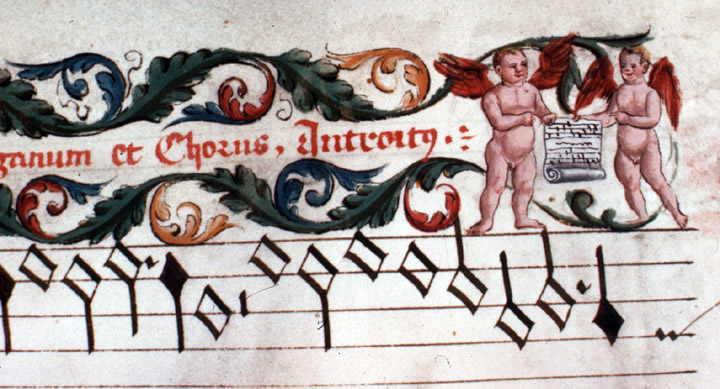 ganum et Chorus, Introitꝰ.: